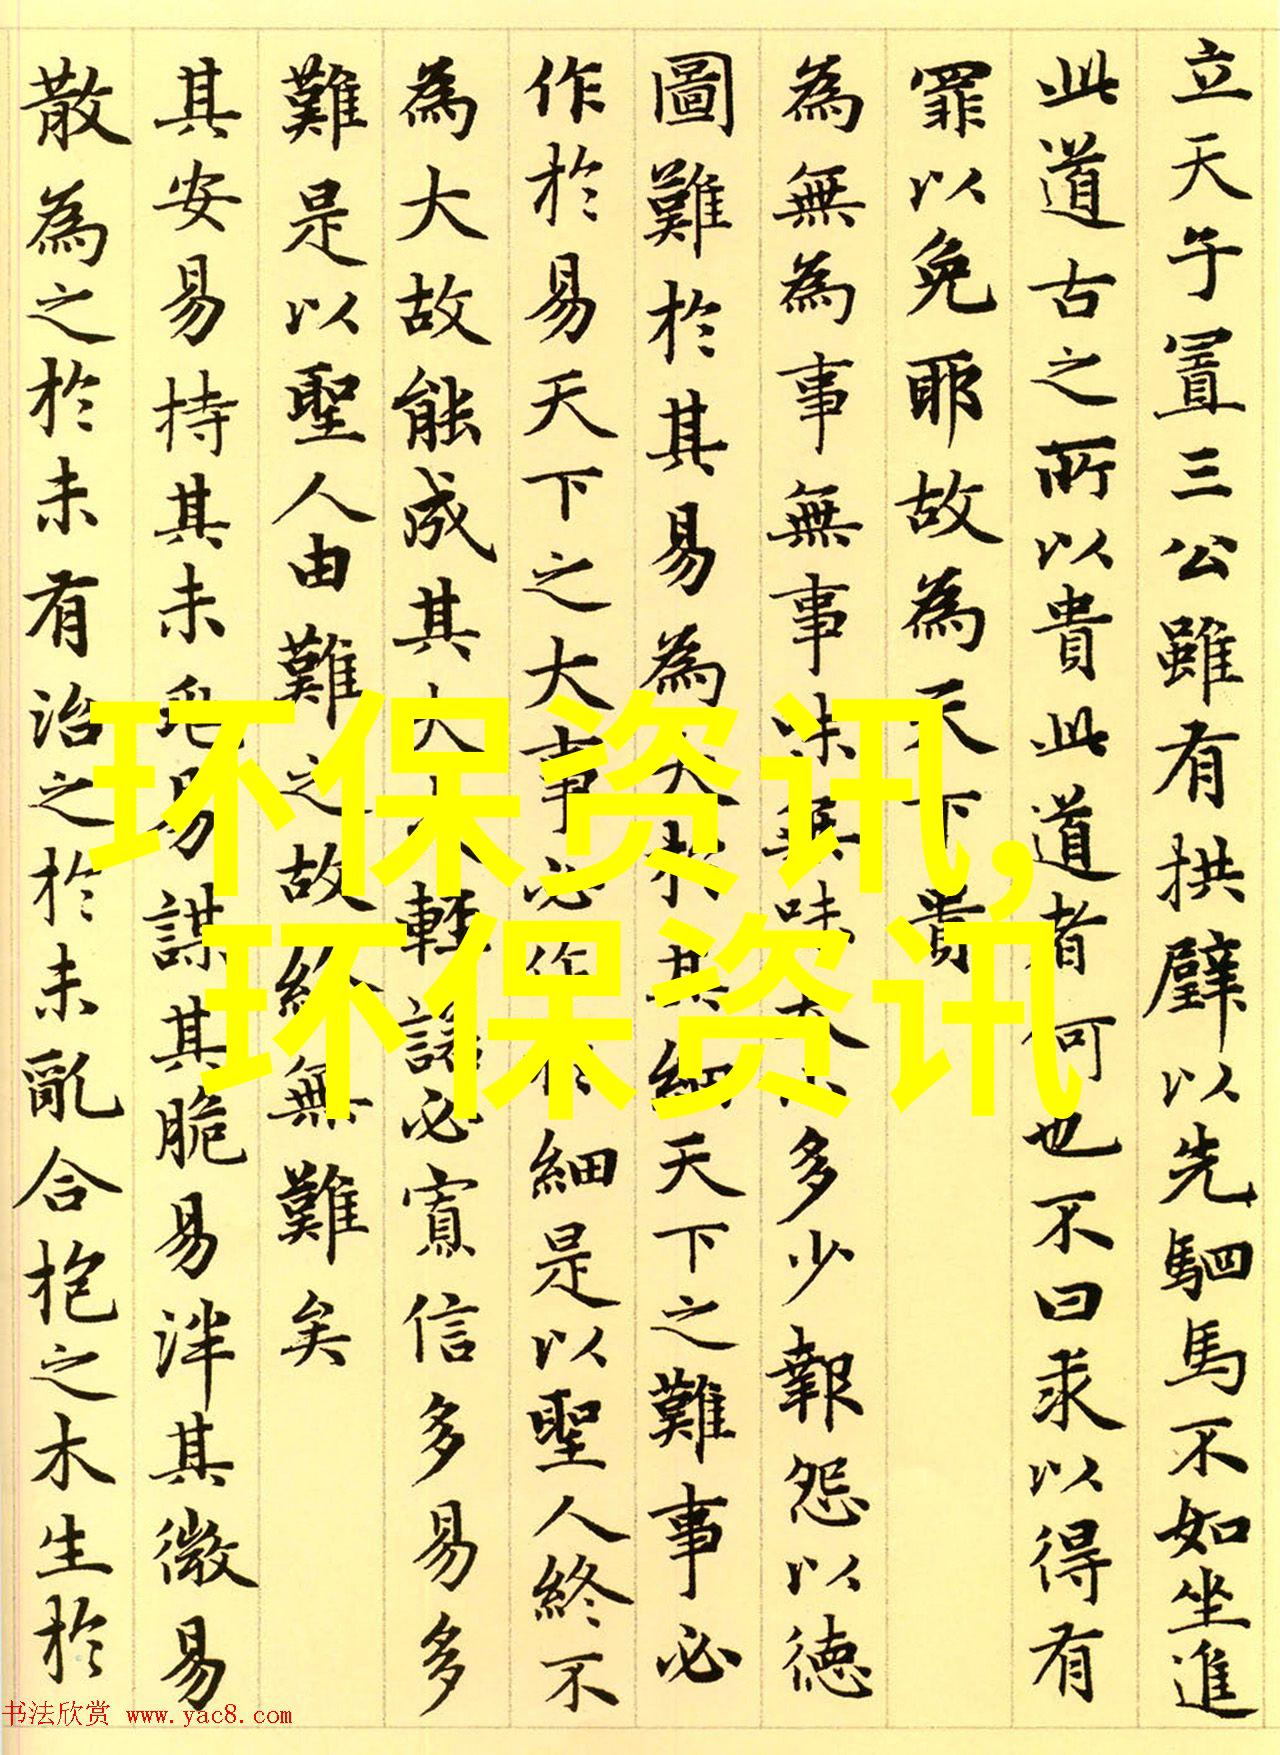 立天子置三公雖有拱璧以先駟馬不如坐進
此道古之所以貴此道者何也不曰求以得有
罪以免耶故為天下貴
為無為事無事味無味大小多少報怨以德
圖難於其易為大於其細天下之難事必
作於易天下之大事必作於細是以聖人終不
為大故能成其大夫輕諾必寡信多易多
難是以聖人由難之故終無難矣
其安易持其未兆易謀其脆易泮其微易
散為之於未有治之於未亂合抱之木生於
环保资讯,
环保资讯
书法欣赏 www.yac8.com